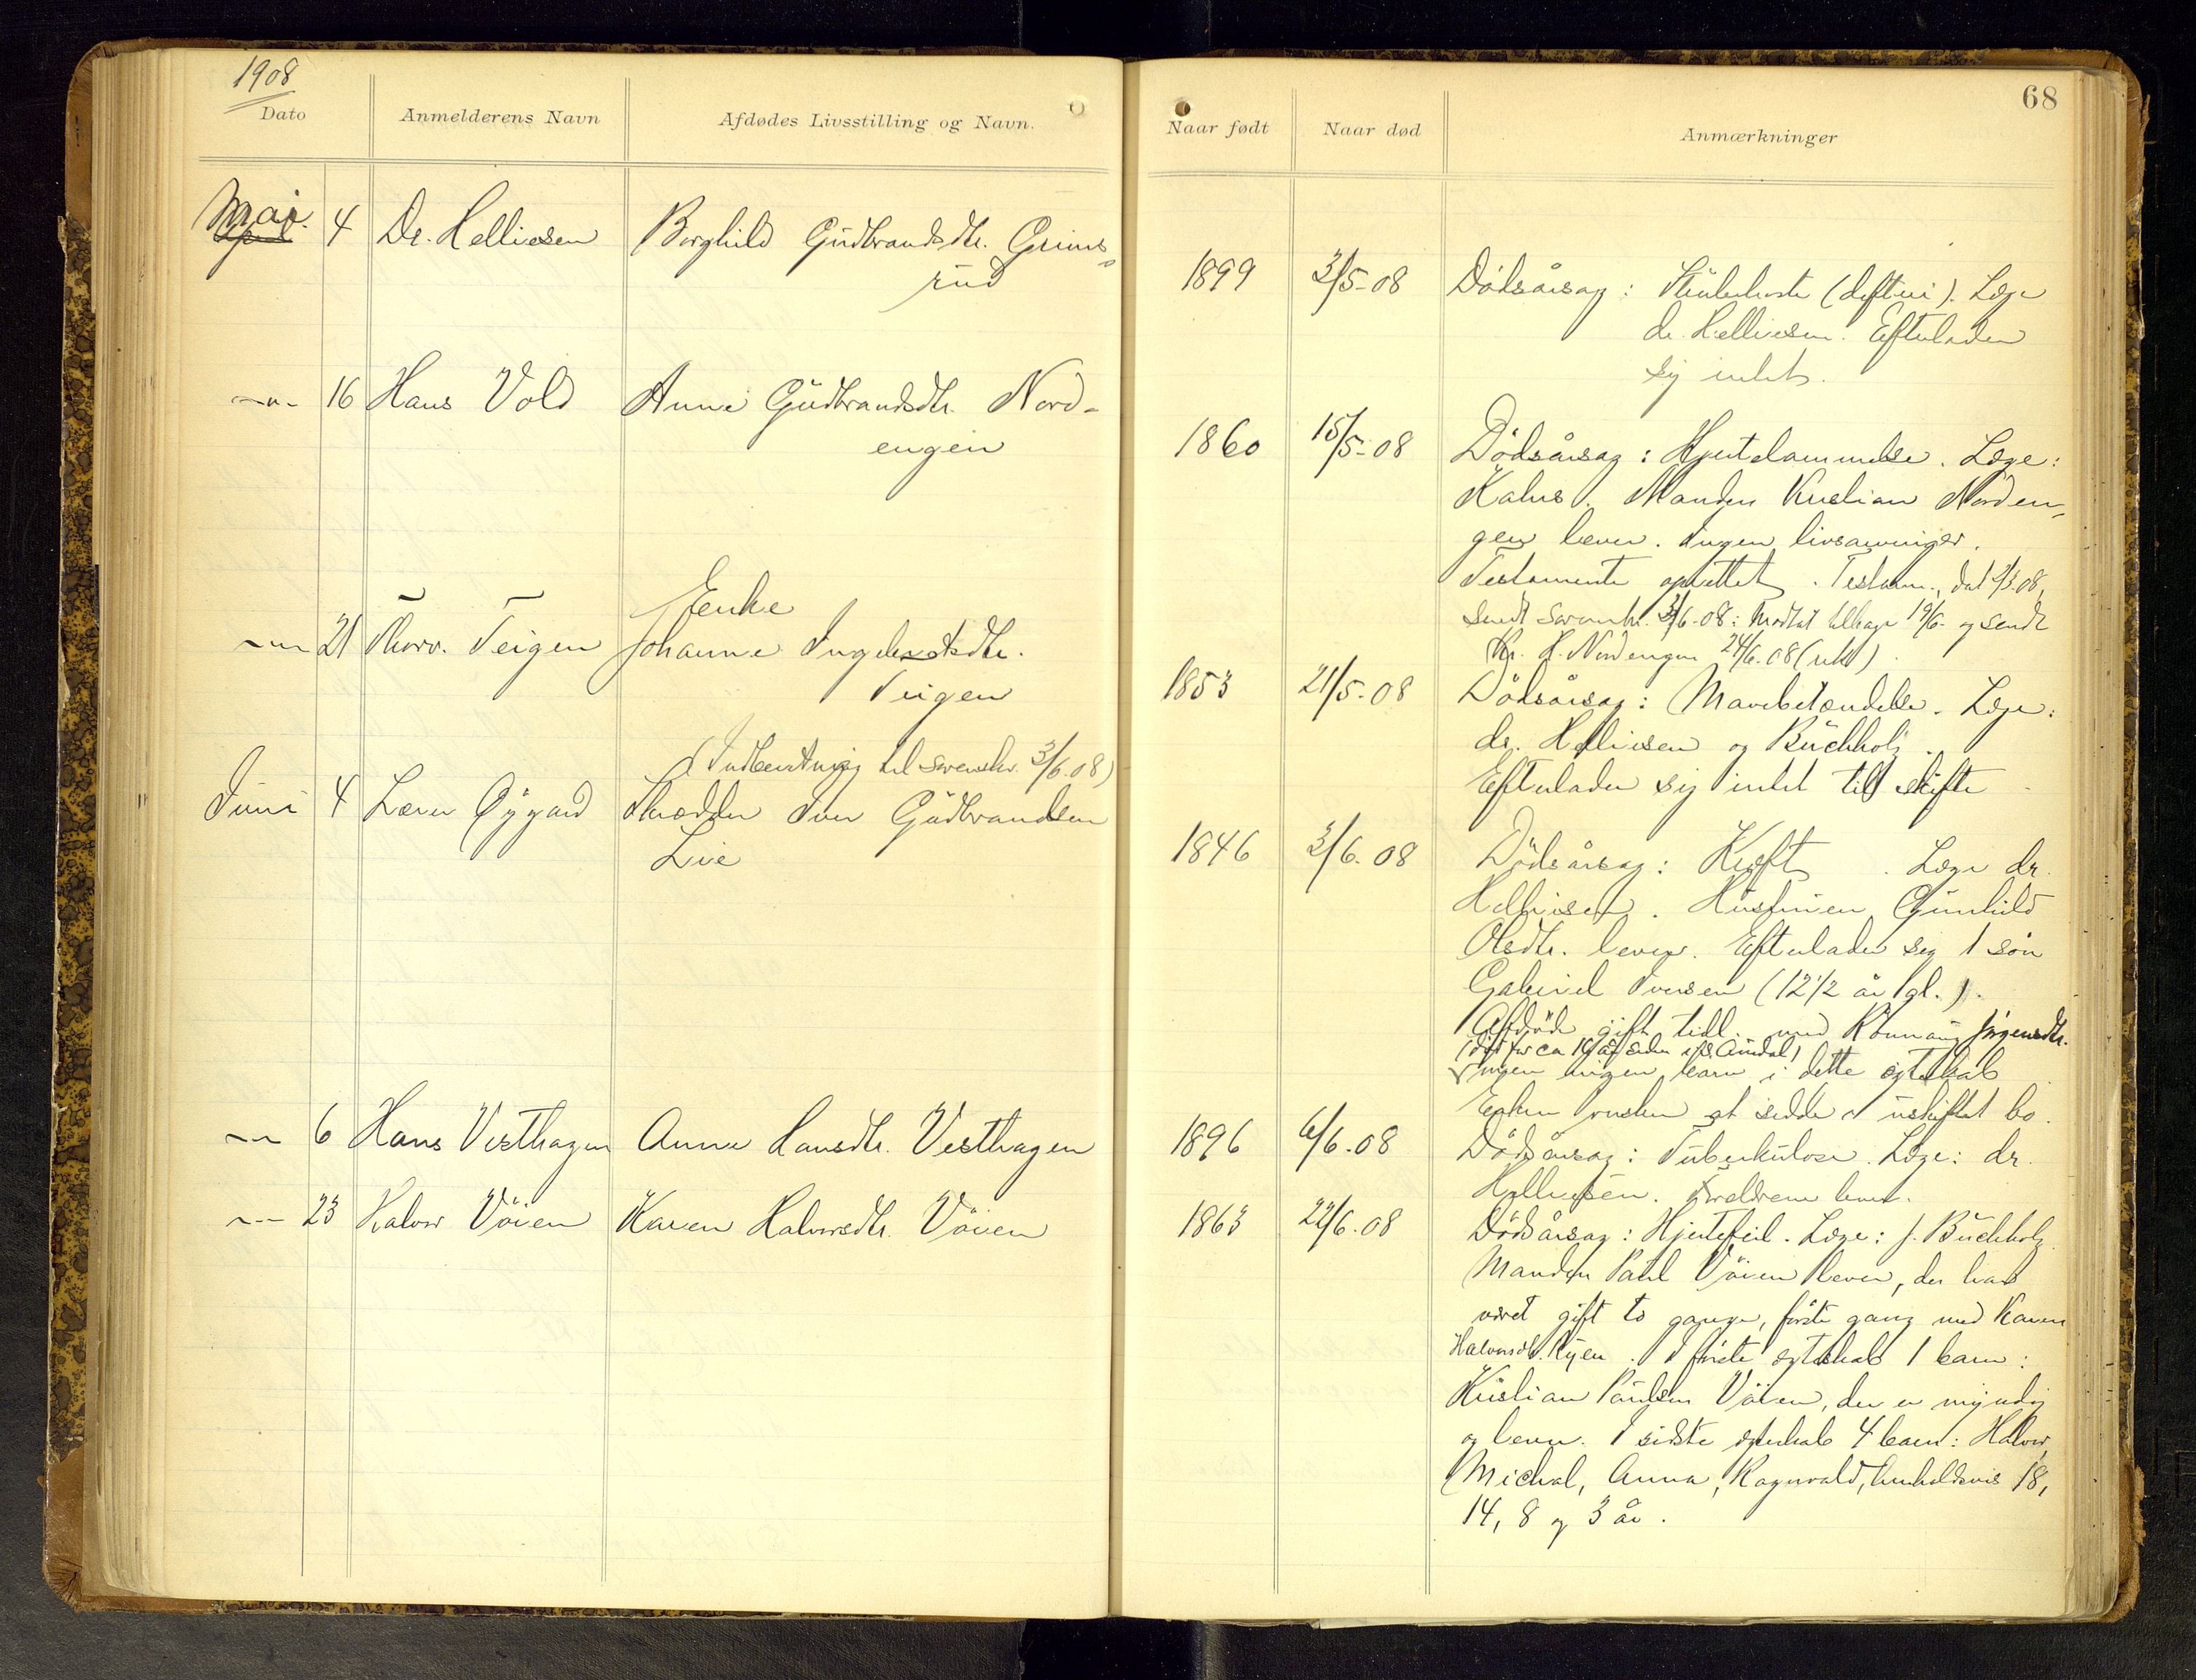 1908
68
Dato
Anmelderens Navn
Afdødes Livsstilling og Navn.
Naar født
Naar død
Anmærkninger
Mai. 4 Dr. Helliesen Borghild Gudbrandsdtr. Grims-
rud
1899 3/5-08 Dödsårsag: Strubehoste (difteri). Læge
dr. Helliesen. Efterlader
sig intet.
-"- 16 Hans Vold Anne Gudbrandsdtr. Nord-
engen
1860 15/5-08 Dödsårsag: Hjertelammelse. Læge:
Kahrs. Manden Kristian Norden-
gen lever. Ingen livsarvinger.
Testamente oprettet. Testam., dat /3.08,
sendt sorenskr. 3/6-08: Modtat tilbage 19/6- og sendt
Kr. H. Nordengen 24/6.08 (rek)
-"- 21 Thorv. Teigen Enke
Johanne Ingebretsdtr.
Teigen
1853 21/5-08 Dödsårsag: Mavebetændelse. Læge:
dr. Helliesen og Buchholz.
Efterlader sig intet till skifte
(Indberetning til sorenskr. 3/6.08)
Juni 4 Lærer Öygard Skrædder Iver Gudbrandsen
Lie
1846 3/6.08 Dödsårsag: Kræft. Læge dr.
Helliesen. Hustruen Gunhild
Olsdtr. lever. Efterlader sig 1 sön
Gabriel Iversen (12 1/2 år gl.).
Afdöde gift tidl. med Rönnaug Jörgensdtr.
(död for ca 19 år siden i Aurdal)
ingen barn i dette egteskab
Enken önsker at sidde i uskiftet bo.
-"- 6 Hans Vesthagen Anne Hansdtr. Vesthagen
1896 6/6.08 Dödsårsag: Tuberkulose. Læge: dr.
Helliesen. Forældrene lever.
-"- 23 Halvor Vöien Karen Halvorsdtr. Vöien
1863 22/6.08 Dödsårsag: Hjertefeil. Læge: J. Buchholz
Manden Paul Vöien lever, der har
været gift to gange, förste gang med Karen
Halvorsdtr. Ryen. I förste egteskab 1 barn:
Kristian Paulsen Vöien, der er myndig
og lever. I sidste egteskab 4 barn: Halvor,
Michal, Anna, Ragnvald, henholdsvis 18,
14, 8 og 3 år.